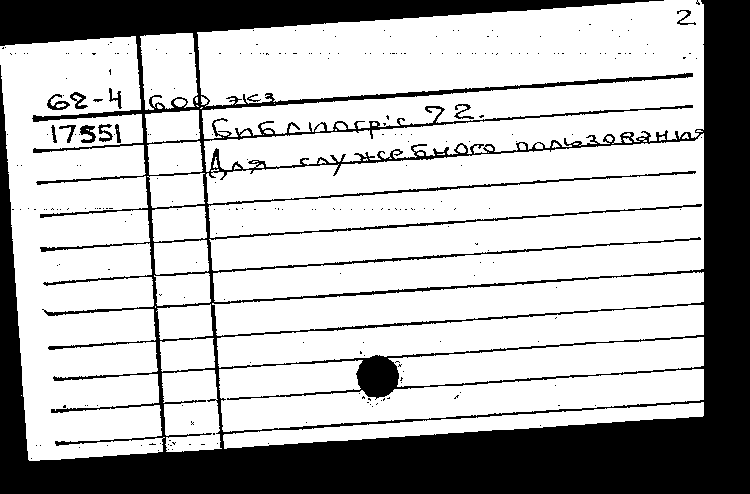 2
62-4 600 экз.
17551 Библиогр.: с. 72.
Для служебного пользования